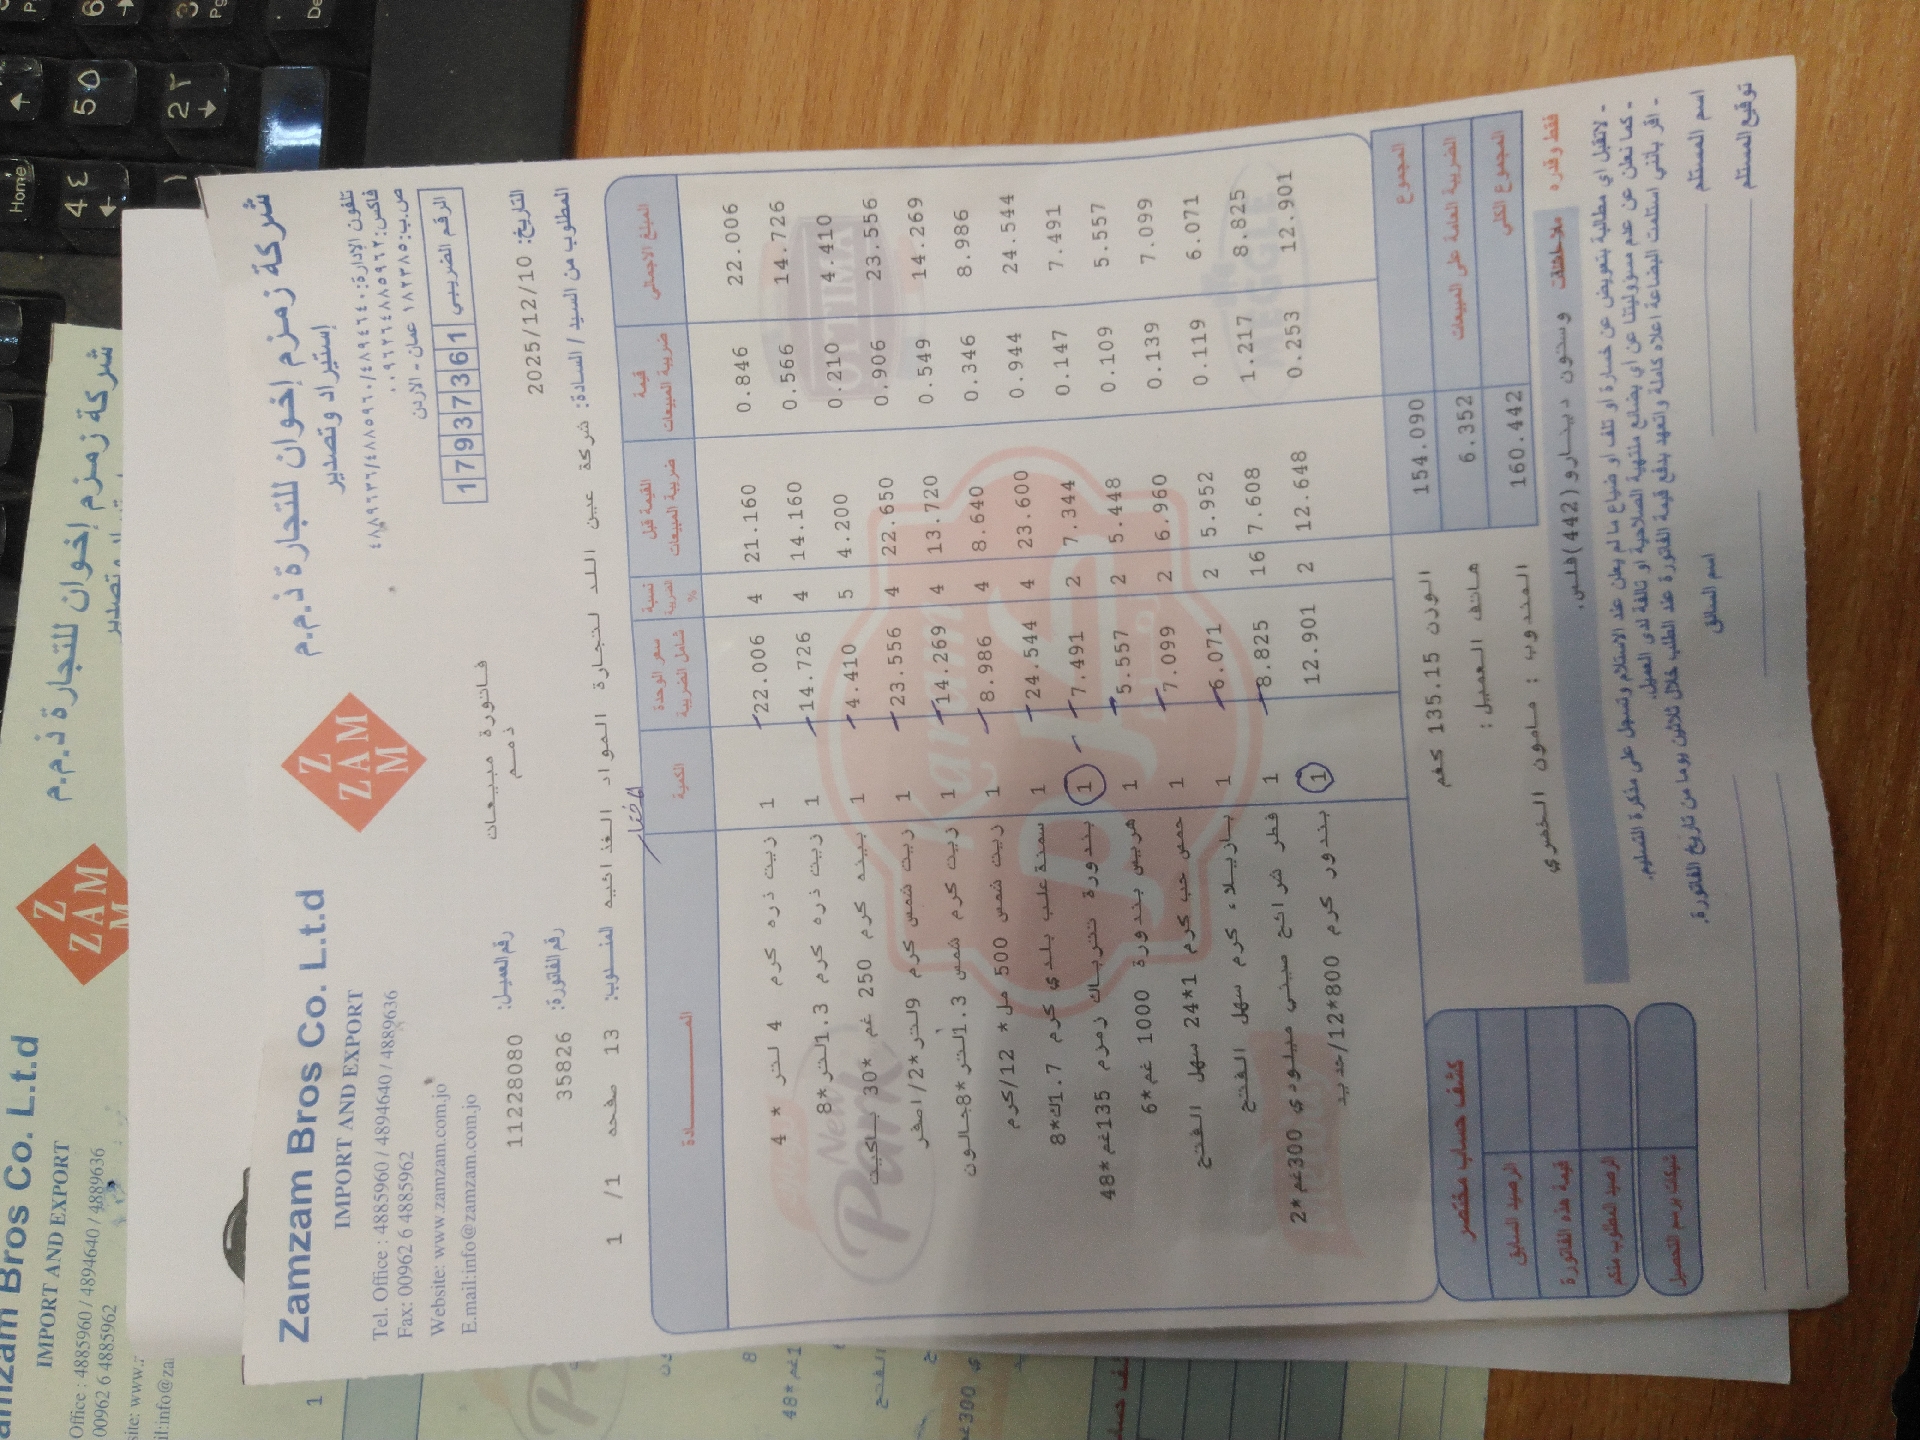 Zamzam Bros Co. L.t.d
IMPORT AND EXPORT
Tel. Office : 4885960 / 4894640 / 4889636
Fax: 00962 6 4885962
Website: www.zamzam.com.jo
E.mail:info@zamzam.com.jo
Z
ZAM
M
شركة زمزم إخوان للتجارة ذ.م.م
إستيراد وتصدير
تلفون الإدارة: ٤٨٨٩٦٣٦/٤٨٨٥٩٦٠/٤٨٩٤٦٤٠
فاكس: ٠٠٩٦٢٦٤٨٨٥٩٦٢
ص.ب: ١٨٢٣٨٥ عمان - الاردن
الرقم الضريبي 17937361
فاتورة مبيعات
ذمم
رقم العميل: 11228080
التاريخ: 2025/12/10
رقم الفاتورة: 35826
المطلوب من السيد / السادة: شركة عين اللد لتجارة المواد الغذائيه
المندوب: 13 صفحه 1/ 1
المـــــــادة الكمية سعر الوحدة شامل الضريبة نسبة الضريبة % القيمة قبل ضريبة المبيعات قيمة ضريبة المبيعات المبلغ الاجمالي
زيت ذره كرم 4 لتر * 4 1 22.006 4 21.160 0.846 22.006
زيت ذره كرم 1.3لتر*8 1 14.726 4 14.160 0.566 14.726
بيبنه كرم 250 غم *30 باكيت 1 4.410 5 4.200 0.210 4.410
زيت شمس كرم 9لتر*2/اصفر 1 23.556 4 22.650 0.906 23.556
زيت كرم شمس 1.3لتر*8جالون 1 14.269 4 13.720 0.549 14.269
زيت شمس 500 مل * 12/كرم 1 8.986 4 8.640 0.346 8.986
سمنة علب بلدي كرم 1.7ك*8 1 24.544 4 23.600 0.944 24.544
بندورة تتراباك زمزم 135غم*48 1 7.491 2 7.344 0.147 7.491
هريس بندورة 1000 غم*6 1 5.557 2 5.448 0.109 5.557
حمص حب كرم 1*24 سهل الفتح 1 7.099 2 6.960 0.139 7.099
بازيلاء كرم سهل الفتح 1 6.071 2 5.952 0.119 6.071
فطر شرائح صيني ميلودي 300غم*2 1 8.825 16 7.608 1.217 8.825
بندور كرم 800*12/حديد 1 12.901 2 12.648 0.253 12.901
الوزن 135.15 كغم
المجموع 154.090
هاتف العميل:
الضريبة العامة على المبيعات 6.352
المندوب : مامون الخضري
المجموع الكلي 160.442
فقط وقدره
وستون دينارو (442)فلس.
ملاحظة
- لاتقبل اي مطالبة بتعويض عن خسارة او تلف او ضياع ما لم يعلن عند الاستلام وتسجل على مذكرة التسليم.
- كما نعلن عن عدم مسؤوليتنا عن اي بضائع منتهية الصلاحية او تالفة لدى العميل.
- اقر بأنني استلمت البضاعة اعلاه كاملة واتعهد بدفع قيمة الفاتورة عند الطلب خلال ثلاثين يوما من تاريخ الفاتورة.
اسم المستلم
اسم السائق
توقيع المستلم
كشف حساب مختصر
الرصيد السابق
قيمة هذه الفاتورة
الرصيد المطلوب منكم
شيكات برسم التحصيل